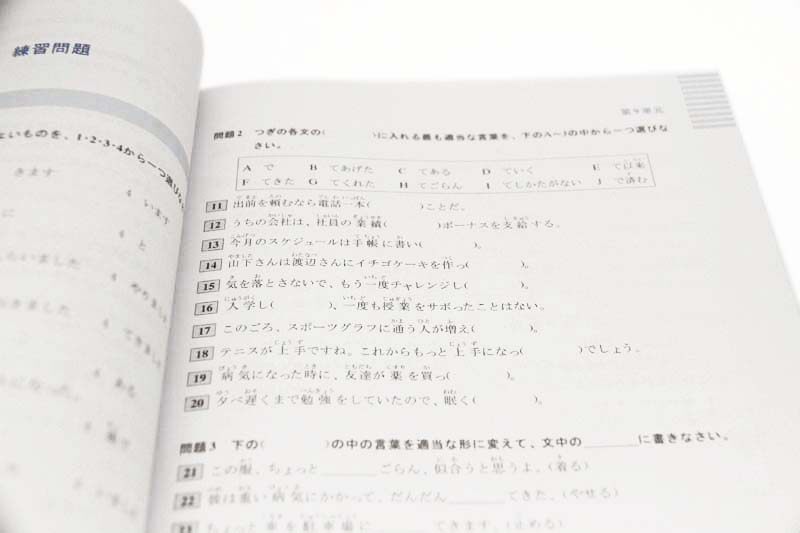 練習問題
いものを、1・2・3・4から一つ選びな
きます
4 います
に
4 と
いました
4 やりまし
きました
4 できまし
になった。
4 ある
第9単元
問題2 つぎの各文の( )に入れる最も適当な言葉を、下のA～Jの中から一つ選びな
さい。
A で B てあげた C てある D ていく E て以来
F てきた G てくれた H てごらん I てしかたがない J で済む
11 出前を頼むなら電話一本( )ことだ。
12 うちの会社は、社員の業績( )ボーナスを支給する。
13 今月のスケジュールは手帳に書い( )。
14 山下さんは渡辺さんにイチゴケーキを作っ( )。
15 気を落とさないで、もう一度チャレンジし( )。
16 入学し( )、一度も授業をサボったことはない。
17 このごろ、スポーツグラフに通う人が増え( )。
18 テニスが上手ですね。これからもっと上手になっ( )でしょう。
19 病気になった時に、友達が薬を買っ( )。
20 夕べ遅くまで勉強をしていたので、眠く( )。
問題3 下の( )の中の言葉を適当な形に変えて、文中の______に書きなさい。
21 この服、ちょっと______ごらん、似合うと思うよ。(着る)
22 彼は重い病気にかかって、だんだん______てきた。(やせる)
23 ちょっと車を駐車場に______てきます。(止める)